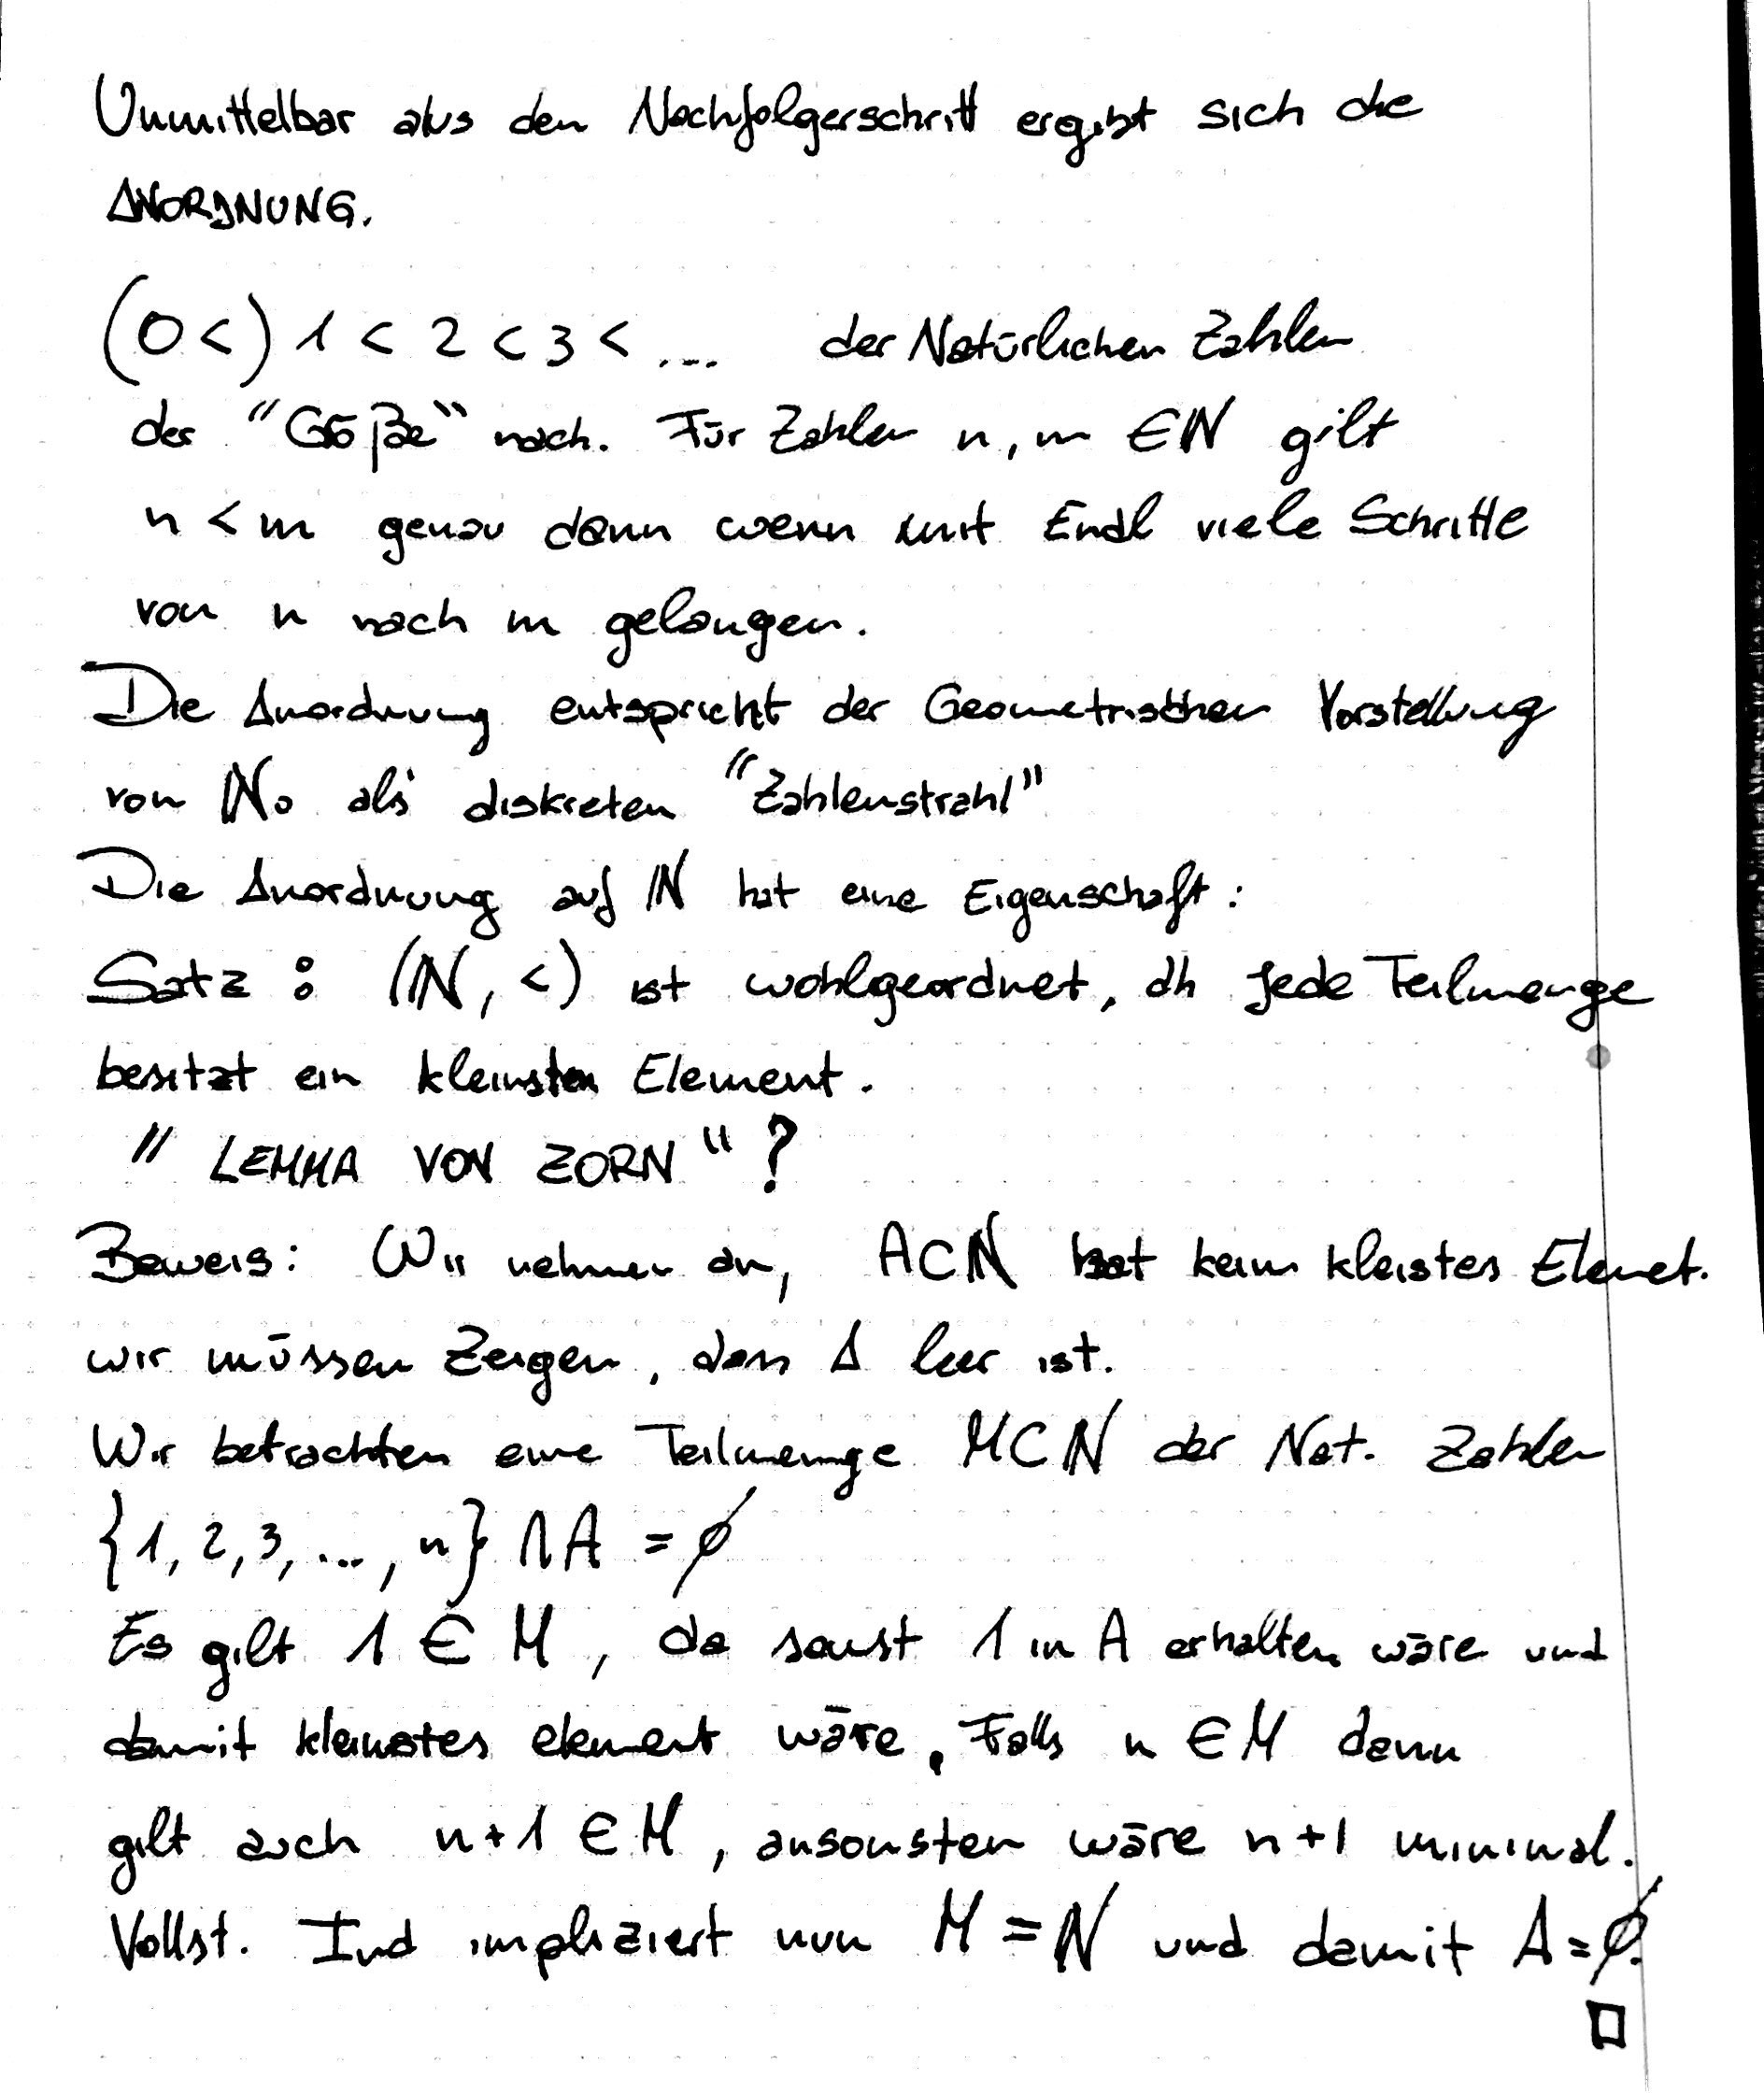 Unmittelbar aus den Nachfolgerschritt ergibt sich die
ANORDNUNG.
(0 <) 1 < 2 < 3 < ... der Natürlichen Zahlen
der "Größe" nach. Für Zahlen n, m ∈ ℕ gilt
n < m genau dann wenn mit Endl viele Schritte
von n nach m gelangen.
Die Anordnung entspricht der Geometrischen Vorstellung
von ℕ₀ als diskreten "Zahlenstrahl"
Die Anordnung auf ℕ hat eine Eigenschaft:
Satz: (ℕ, <) ist wohlgeordnet, dh jede Teilmenge
besitzt ein kleinsten Element.
"LEMMA VON ZORN"?
Beweis: Wir nehmen an, A ⊂ ℕ hat kein kleistes Elemet.
wir müssen Zeigen, dass A leer ist.
Wir betrachten eine Teilmenge M ⊂ ℕ der Nat. Zahlen
{1, 2, 3, ..., n} ∩ A = ∅
Es gilt 1 ∈ M, da sonst 1 in A erhalten wäre und
damit kleinstes element wäre. Falls n ∈ M dann
gilt auch n+1 ∈ M, ansonsten wäre n+1 minimal.
Vollst. Ind impliziert nun M = ℕ und damit A = ∅.
□